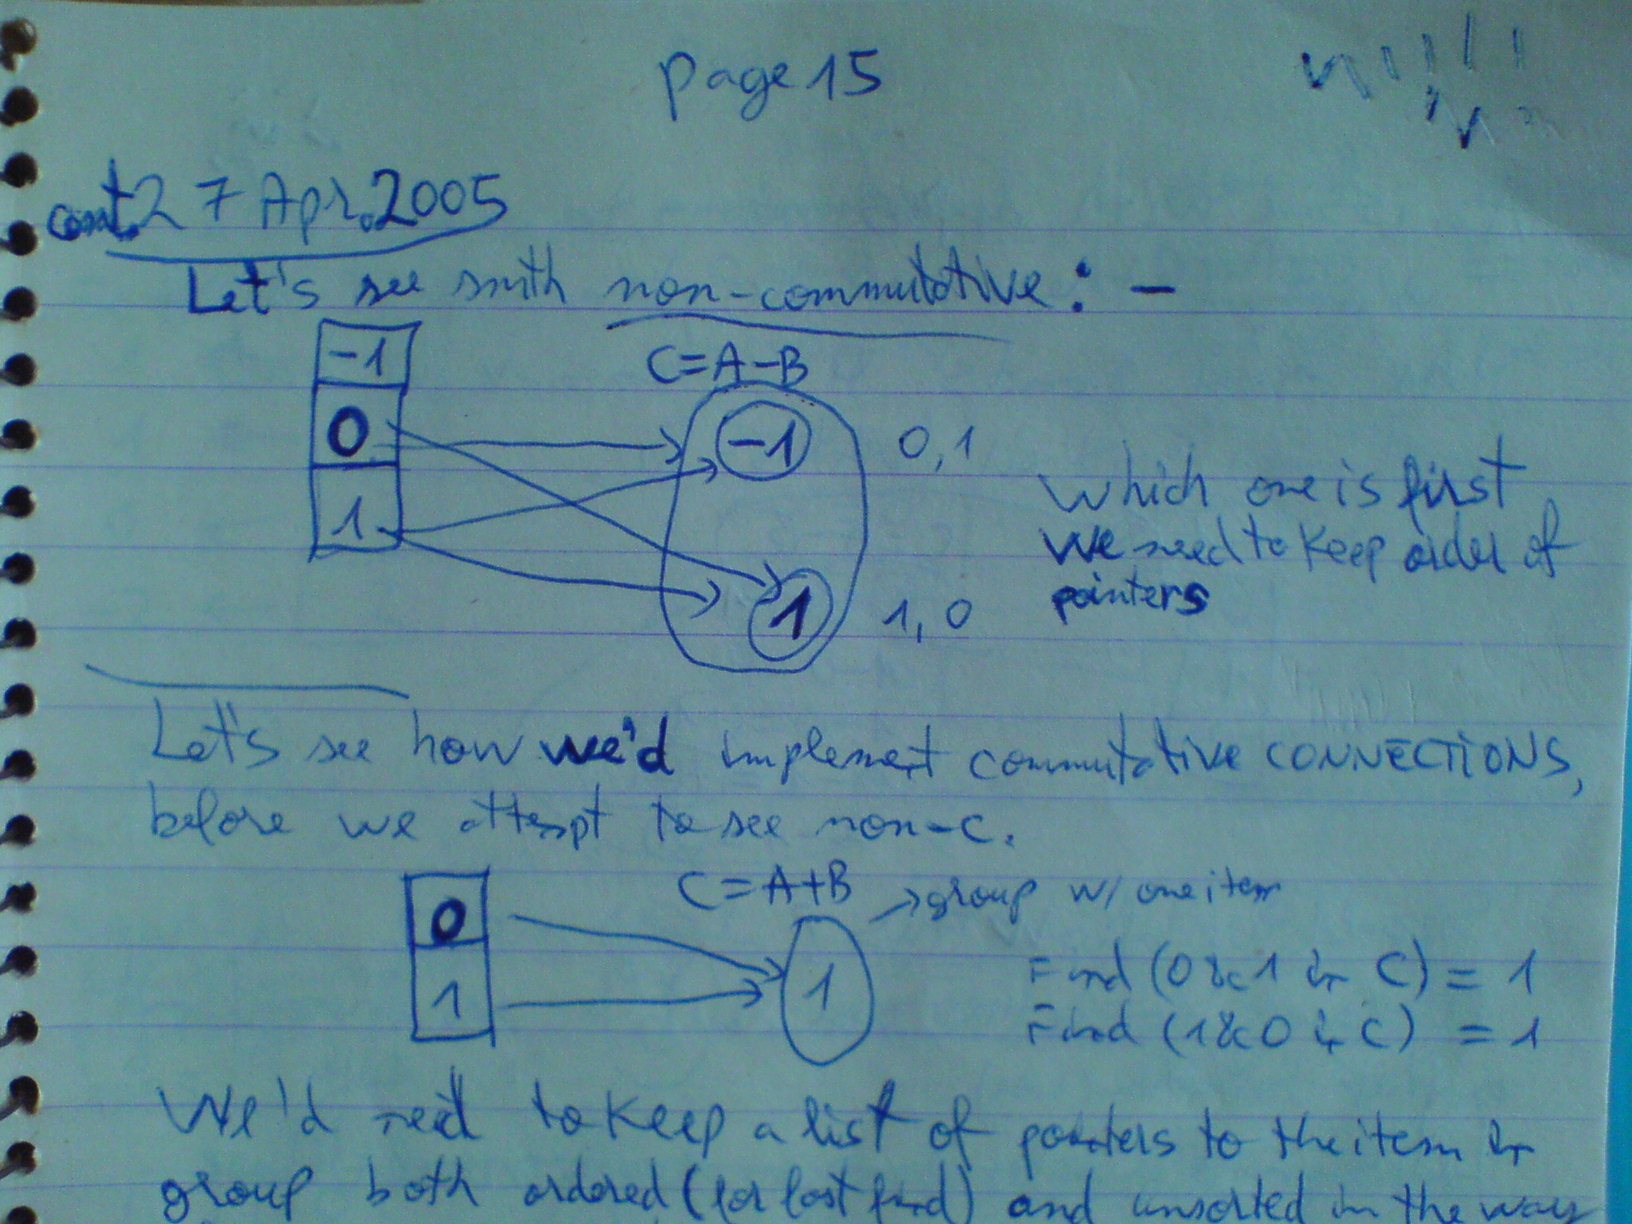 page 15
cont. 27 Apr. 2005
Let's see smth non-commutative: -
-1
0
1
C=A-B
-1
0,1
1
1,0
Which one is first
We need to keep order of
pointers
Let's see how we'd implement commutative CONNECTIONS,
before we attempt to see non-c.
0
1
C=A+B
1
→group w/ one item
Find (0&1 in C) = 1
Find (1&0 in C) = 1
We'd need to keep a list of pointers to the item in
group both ordered (for fast find) and unsorted in the way